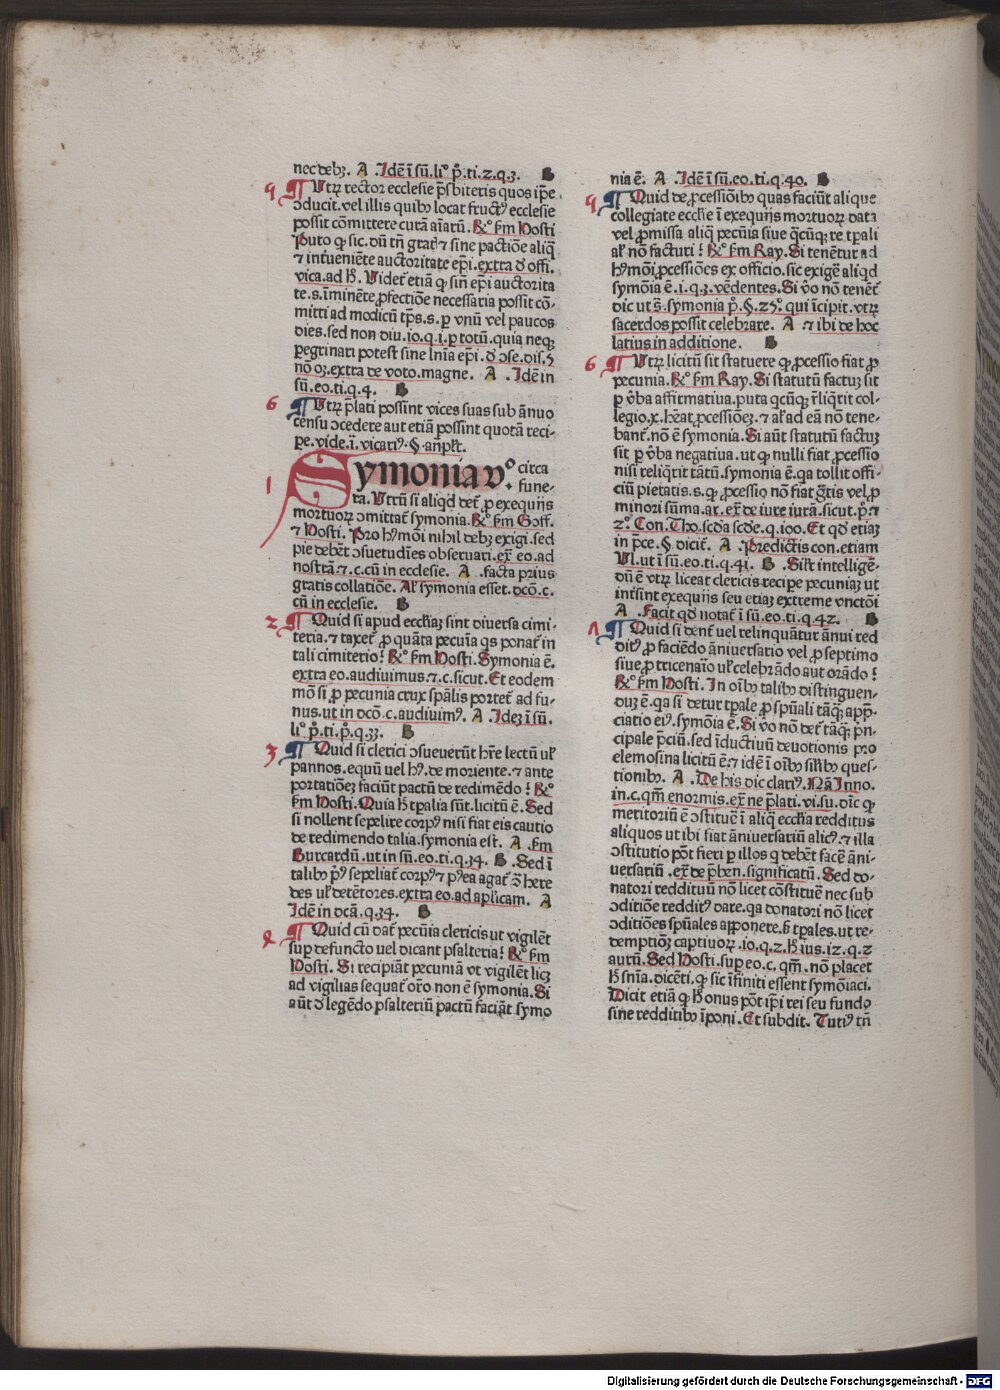 nec debꝫ. A .Idē ī sū. liº p̄. ti. 2. q. 3. B
5 ¶ Vtrꝝ rector ecclesie p̄sbiteris quos ip̄e
ↄducit. vel illis quibꝰ locat fructꝰ ecclesie
possit cōmittere curā aīarū. ℞º ẜm Hosti
Puto ꝙ sic. dū tn̄ gratꝭ ⁊ sine pactiōe aliq̄
⁊ interueniēte auctoritate ep̄i. extra ð offi.
vica. ad ħ. Videt̄ etiā ꝙ sin̄ ep̄i auctorita
te. s. īminēte ꝓfectiōe necessaria possit cō⸗
mitti ad modicū tp̄s. s. ꝑ vnū vel paucos
dies. sed non diu. io. q. i. ꝑ totū. quia neqꝫ
ꝑegrinari potest sine ln̄ia ep̄i. ð ↄse. dis. 5
nō oꝫ. extra de voto. magne. A .Idē in
sū. eo. ti. q. 4. B
6 ¶ Vtrꝝ p̄lati possint vices suas sub ānuo
censu ↄcedere aut etiā possint quotā reci⸗
pe. vide. ī. vicariꝰ. §. an p̄lt̄.
1 Symonia vº. circa
fune⸗
ra. Vtrū si aliqd det̄ ꝓ exequijs
mortuoꝝ ↄmittat̄ symonia. ℞º ẜm Goff.
⁊ Hosti. Pro hꝰmōi nihil debꝫ exigi. sed
pie debēt ↄsuetudīes obseruari. ex̄ eo. ad
nostrā. ⁊ c. cū in ecclesie. A .facta prius
gratis collatiōe. Al̄ symonia esset. dcō. c.
cū in ecclesie. B
2 ¶ Quid si apud eccliaꝫ sint diuersa cimi⸗
teria. ⁊ taxet̄ ꝓ quāta pecuīa qs ponat̄ in
tali cimiterio? ℞º ẜm Hosti. Symonia ē.
extra eo. audiuimus. ⁊ c. sicut. Et eodem
mō si ꝓ pecunia crux spālis portet̄ ad fu⸗
nus. ut in dcō. c. audiuimꝰ. A .Ideꝫ ī sū.
liº p̄. ti. p̄. q. 33. B
3 ¶ Quid si clerici ↄsueuerūt hr̄e lectū ul̄
pannos. equū uel hꝰ. de moriente. ⁊ ante
portatiōeꝫ faciūt pactū de redimēdo? ℞º
ẜm Hosti. Quia ħ tꝑalia sūt. licitū ē. Sed
si nollent sepelire corpꝰ nisi fiat eis cautio
de redimendo talia. symonia est. A .ẜm
Burcardū. ut in sū. eo. ti. q. 34. B .Sed ī
talibꝰ pꝰ sepeliat̄ corpꝰ ⁊ pꝰea agat̄ ↄ̄ here
des ul̄ detētores. extra eo. ad aplicam. A
Idē in dcā. q. 34. B
4 ¶ Quid cū dat̄ pecūia clericis ut vigilēt
suꝑ defuncto uel dicant psalteria? ℞º ẜm
Hosti. Si recipiāt pecuniā vt vigilēt licꝫ
ad vigilias sequat̄ oro non ē symonia. Si
aūt ð legēdo psalteriū pactū faciāt symo
nia ē. A .Idē ī sū. eo. ti. q. 40. B
5 ¶ Quid de ꝓcessiōibꝰ quas faciūt alique
collegiate ecclie ī exequijs mortuoꝝ data
vel ꝓmissa aliq̄ pecūia siue q̄cūqꝫ re tꝑali
al̄ nō facturi? ℞º ẜm Ray. Si tenētur ad
hꝰmōi ꝓcessiōes ex officio. sic exigē aliqd
symōia ē. i. q. 3. vēdentes. Si vo nō tenēt̄
dic ut s̄. symonia p̄. §. 25º. qui īcipit. vtrꝝ
sacerdos possit celebrare. A ⁊ ibi de hoc
latius in additione. B
6 ¶ Vtrꝝ licitū sit statuere ꝙ ꝓcessio fiat ꝓ
pecunia. ℞º ẜm Ray. Si statutū factuꝫ sit
ꝑ v̄ba affirmatiua. puta qcūqꝫ r̄liq̄rit col⸗
legio. x. hēat ꝓcessiōeꝫ. ⁊ al̄ ad eā nō tene⸗
bant̄. nō ē symonia. Si aūt statutū factuꝫ
sit ꝑ v̄ba negatiua. ut ꝙ nulli fiat ꝓcessio
nisi reliq̄rit tātū. symonia ē. qa tollit offi⸗
ciū pietatis. s. ꝙ ꝓcessio nō fiat gr̄tis vel ꝓ
minori sūma. ar. ex̄ de iure iurā. sicut. p̄. ⁊
2º. Con. Tho. scda scde. q. 100. Et qd etiaꝫ
in p̄ce. §. dicit̄. A .Predictis con. etiam
Vl. ut ī sū. eo. ti. q. 41. B .Silr̄ intelligē⸗
dū ē vtrꝝ liceat clericis recipe pecuniaꝫ ut
int̄sint exequijs seu etiaꝫ extreme vnctōi
A .Facit qd notat̄ ī sū. eo. ti. q. 42. B
7 ¶ Quid si dent̄ uel relinquātur ānui red
ditꝰ ꝓ faciēdo āniuersario vel ꝓ septimo
siue ꝓ tricenaīo ul̄ celebrādo aut orādo?
℞º ẜm Hosti. In oībꝰ talibꝰ distinguen⸗
duꝫ ē. qa si detur tꝑale ꝓ spūali tāqꝫ app̄⸗
ciatio eiꝰ. symōia ē. Si vo nō det̄ tāqꝫ pn̄⸗
cipale p̄ciū. sed īductiuū deuotionis pro
elemosina licitū ē. ⁊ idē ī oībꝰ silībꝰ ques⸗
tionibꝰ. A .De his dic clariꝰ. Nā Inno.
in. c. qm̄ enormis. ex̄ ne p̄lati. vi. su. dīc ꝙ
meritoriū ē ↄstituē ī aliq̄ ecclia redditus
aliquos ut ibi fiat āniuersariū alicꝰ. ⁊ illa
ↄstitutio pōt fieri ꝑ illos q debēt facē āni⸗
uersariū. ex̄ de p̄ben. significatū. Sed do⸗
natori reddituū nō licet cōstituē nec sub
ↄditiōe redditꝰ dare. qa donatori nō licet
ↄditiōes spūales apponere. ẜ tꝑales. ut re⸗
demptiōꝫ captiuoꝝ. io. q. 2. ħ ius. 12. q. 2
aurū. Sed Hosti. suꝑ eo. c. qm̄. nō placet
ħ sn̄ia. dicēti. ꝙ sic īfiniti essent symōiaci.
Dicit etiā ꝙ ħ onus pōt ip̄i rei seu fundo
sine redditibꝰ īponi. Et subdit. Tutiꝰ tn̄
Digitalisierung gefördert durch die Deutsche Forschungsgemeinschaft - DFG